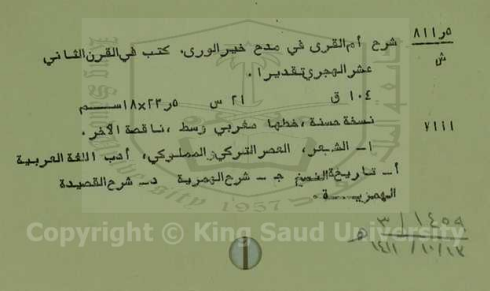 ٨١١٫٥
ش
شرح أم القرى في مدح خير الورى. كتب في القرن الثاني
عشر الهجري تقديرا.
١٠٤ ق ٢١ س ٢٣٫٥×١٨ سم
٧١١١
نسخة حسنة، خطها مغربي وسط، ناقصة الآخر.
١- الشعر، العصر التركي والمملوكي، أدب اللغة العربية
أ- تاريخ النسخ ج- شرح الهمزية د- شرح القصيدة
الهمزيـــــة.
Copyright © King Saud University
1957
٣/١٤٥٩
١٤١١/١٠/١٣